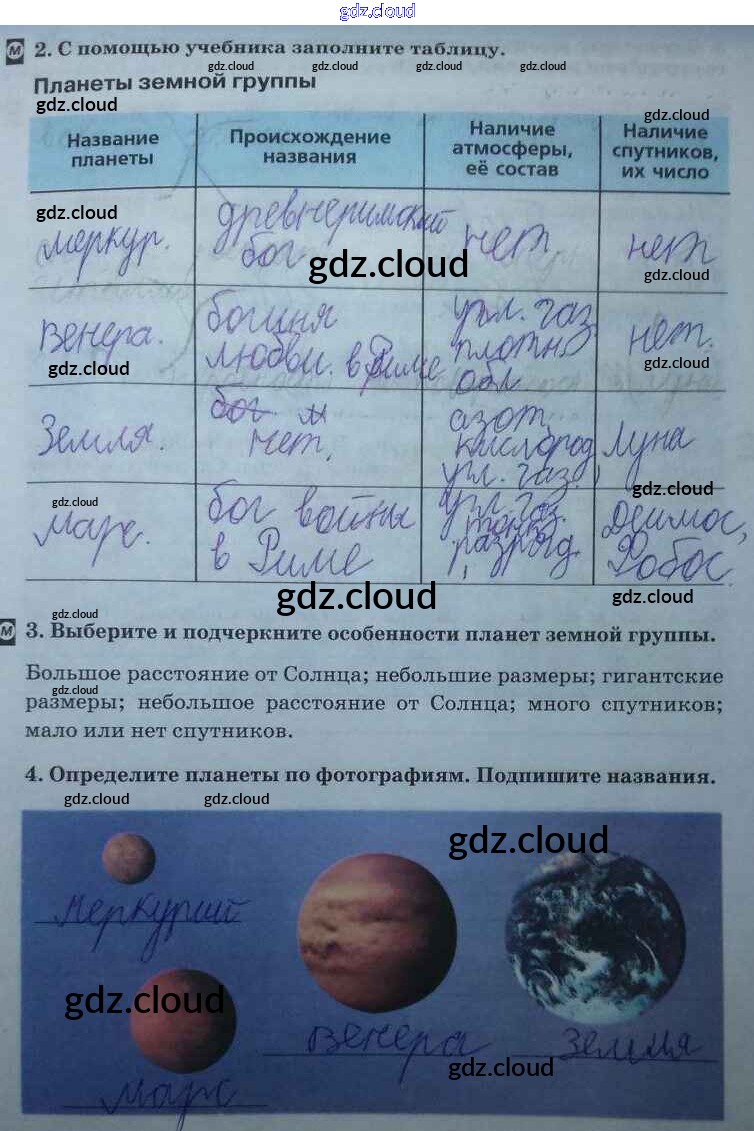 gdz.cloud
2. С помощью учебника заполните таблицу.
gdz.cloud gdz.cloud gdz.cloud gdz.cloud
Планеты земной группы
gdz.cloud gdz.cloud
Название планеты
Происхождение названия
Наличие атмосферы, её состав
Наличие спутников, их число
gdz.cloud
меркур.
древнеримский
бог
нет
нет
gdz.cloud gdz.cloud
венера.
богиня
любви. в Риме
угл. газ
плотн
обл
нет.
gdz.cloud gdz.cloud
Земля.
бог. м
нет.
азот,
кислород,
угл. газ.
Луна
gdz.cloud gdz.cloud
марс.
бог войны
в Риме
угл. газ.
тонк.
разряд
Деимос,
Фобос.
gdz.cloud gdz.cloud
gdz.cloud
3. Выберите и подчеркните особенности планет земной группы.
Большое расстояние от Солнца; небольшие размеры; гигантские
gdz.cloud
размеры; небольшое расстояние от Солнца; много спутников;
мало или нет спутников.
4. Определите планеты по фотографиям. Подпишите названия.
gdz.cloud gdz.cloud
gdz.cloud
меркурий
gdz.cloud
венера
земля
gdz.cloud
марс